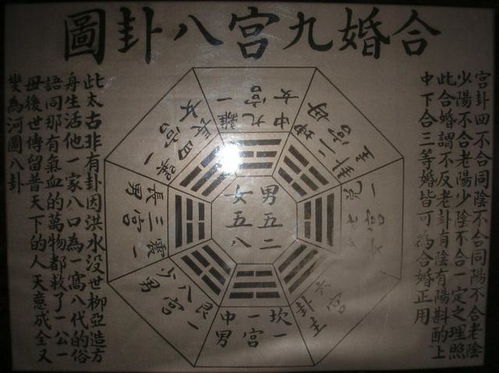 合婚九宮八卦圖
宮卦四不合同陰不合同陽不合老陰
少陽不合老陽少陰不合一定之理照
此合婚謂不反老卦有陰有陽斟酌上
中下合三等婚皆可為合婚正用
離一
九宮
中女
二坤
宮
母
一
七宮
六宮
卦主
坎一
一宮
中男
艮一
八宮
少男
震一
三宮
長男
巽一
四宮
長女
男五二
女五八
此太古非有卦因洪水没世柳亞造方
舟生活他一家八口為一窩八代的俗
語同那有氣血的萬物都救了一公一
母後世傳留普天下的人天意成全又
變為河圖八卦